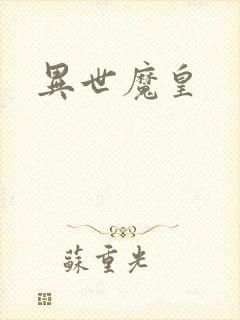 異世魔皇
蘇重光